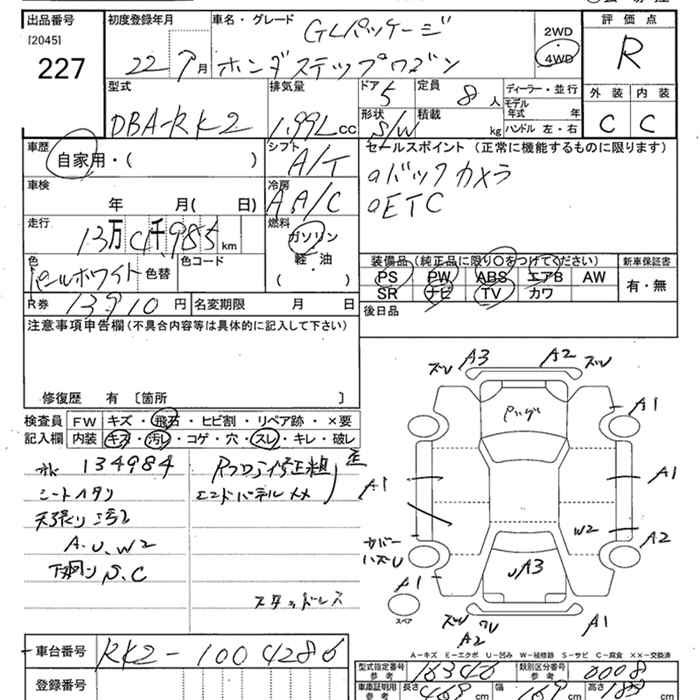 出品番号 初度登録年月 車名・グレード GLパッケージ 2WD 評価点
[2045] 4WD R
227 22 7月 ホンダステップワゴン
型式 排気量 ドア 5 定員 8人 ディーラー・並行 外装 内装
DBA-RK2 1.99L cc 形状 S/W 積載 kg モデル年式 年 C C
ハンドル 左・右
車歴 シフト セールスポイント (正常に機能するものに限ります)
自家用・( ) A/T バックカメラ
車検 冷房 ETC
年 月( 日) A A/C
走行 燃料
13万 千985 km ガソリン
軽・油 装備品(純正品に限り○をつけてください) 新車保証書
色 色替 色コード ( ) PS PW ABS エアB AW 有・無
パールホワイト SR ナビ TV カワ
R券 13910円 名変期限 月 日 後日品
注意事項申告欄(不具合内容等は具体的に記入して下さい)
修復歴 有 [箇所 ]
検査員 FW キズ・飛石・ヒビ割・リペア跡・×要
記入欄 内装 キズ・汚レ・コゲ・穴・スレ・キレ・破レ
134984
シートヘタリ エンドパネル
天張り汚レ
A.U.W2
下廻り S.C
スタッドレス
ズU A3 A2 ズU
A1
A1 A1
W2 A2
カバーハズレ
A1 UA3
スペア A2 A1
A-キズ E-エクボ U-凹み W-補修跡 S-サビ C-腐食 ××-交換済
車台番号 RK2-1004286 型式指定番号 参考 16346 類別区分番号 参考 0008
登録番号 車庫証明用 参考 長さ 469 cm 幅 169 cm 高さ 183 cm